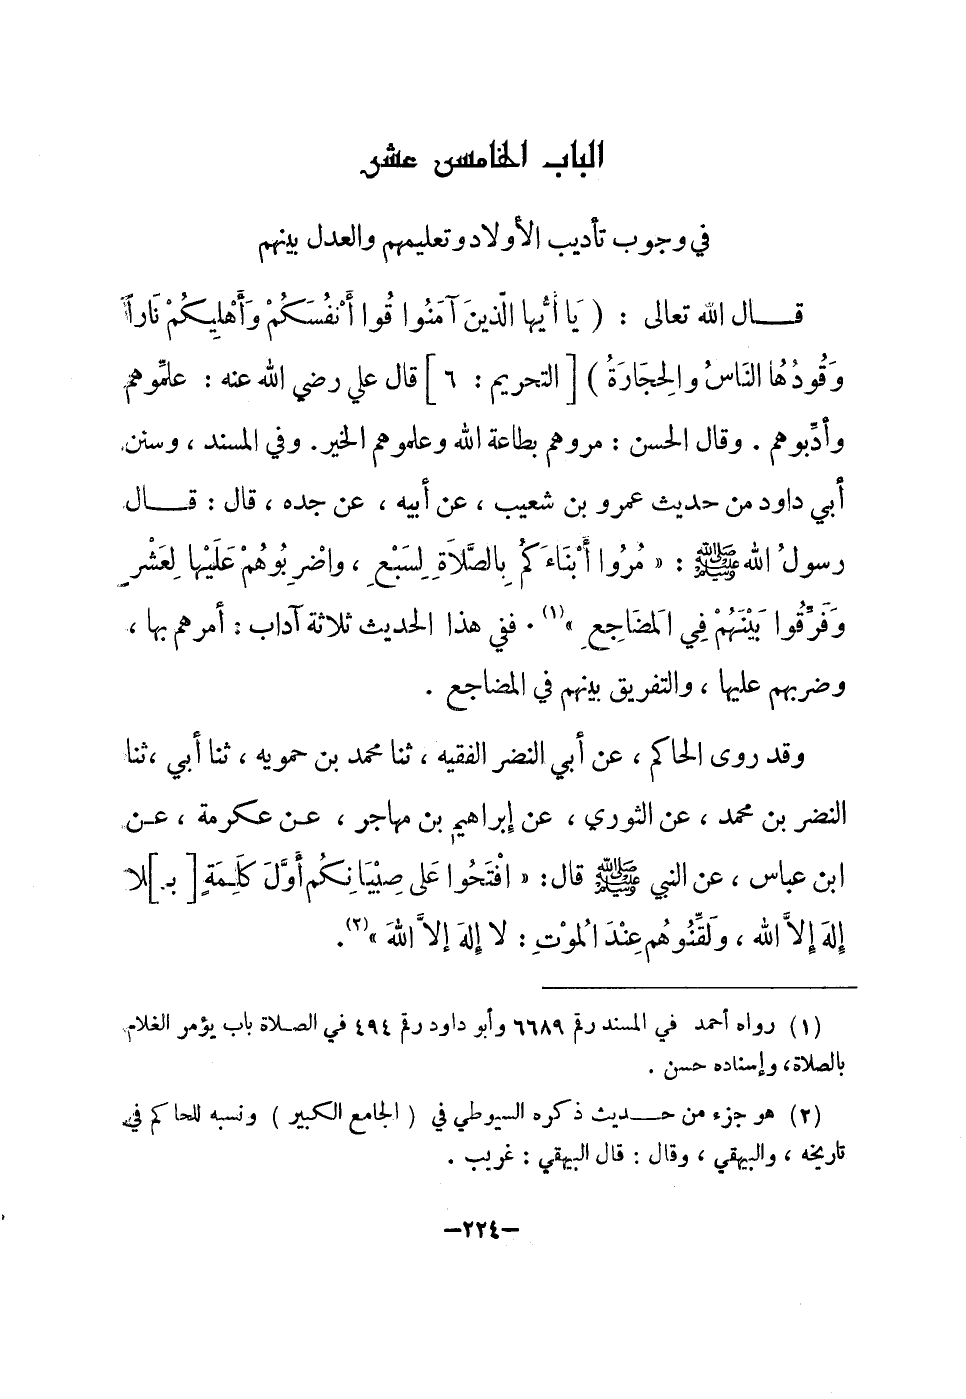 الباب الخامس عشر
في وجوب تأديب الأولاد وتعليمهم والعدل بينهم
قـــال الله تعالى : ( يَا أَيُّها الّذينَ آمَنُوا قُوا أَنْفُسَكُمْ وَأَهْلِيكُمْ نَاراً
وَقُودُهُا النَاسُ والِحجَارَةُ ) [ التحريم : ٦ ] قال علي رضي الله عنه : علمِّوهم
وأدِّبوهم . وقال الحسن : مروهم بطاعة الله وعلموهم الخير. وفي المسند ، وسنن
أبي داود من حديث عمرو بن شعيب ، عن أبيه ، عن جده ، قال : قـــال
رسولُ الله ﷺ : « مُرُوا أَبْنَاءَكُمْ بِالصَّلَاةِ لِسَبْعٍ ، واضْرِبُوهُمْ عَلَيْها لِعَشْرٍ
وَفَرِّقُوا بَيْنَهُمْ فِي المَضَاجِعِ »(١) . ففي هذا الحديث ثلاثة آداب : أمرهم بها ،
وضربهم عليها ، والتفريق بينهم في المضاجع .
وقد روى الحاكم ، عن أبي النضر الفقيه ، ثنا محمد بن حمويه ، ثنا أبي ،ثنا
النضر بن محمد ، عن الثوري ، عن إبراهيم بن مهاجر ، عـن عكرمة ، عـن
ابن عباس ، عن النبي ﷺ قال: « افْتَحُوا عَلى صِبْيَانِكُم أَوَّلَ كَلِمَةٍ [ بـ ]لا
إِلهَ إِلاَّ الله ، ولَقِّنُوهُم عِنْدَ المُوْتِ : لا إِلهَ إلاَّ اللهَ »(٢).
(١) رواه أحمد في المسند رقم ٦٦٨٩ وأبو داود رقم ٤٩٤ في الصلاة باب يؤمر الغلام
بالصلاة، وإسناده حسن .
(٢) هو جزء من حـــديث ذكره السيوطي في ( الجامع الكبير ) ونسبه للحاكم في
تاريخه ، والبيهقي ، وقال : قال البيهقي : غريب .
–٢٢٤–